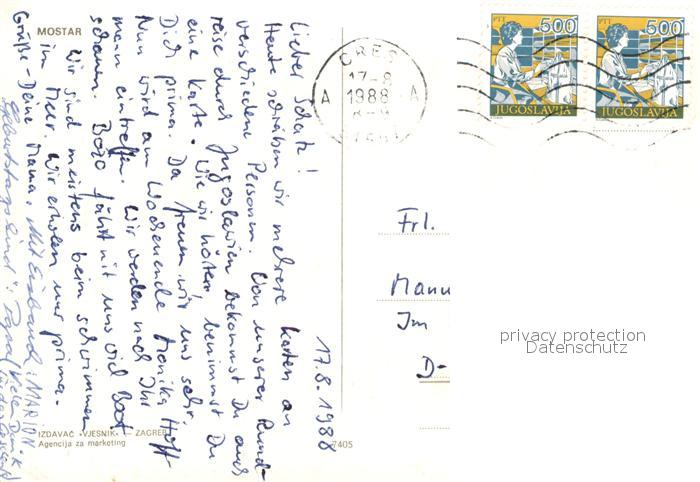 MOSTAR
17.8.1988
Lieber Schatz!
Heute schreiben wir mehrere Karten an
verschiedene Personen. Von unserer Rund-
reise durch Jugoslawien bekommst Du auch
eine Karte. Wie wir hören, benimmst Du
Dich prima. Da freuen wir uns sehr.
Nun wird am Wochenende Monika Hoff
mann eintreffen. Wir werden nach Ihr
schauen. Bozo fährt mit uns viel Boot
Wir sind meistens beim schwimmen
im Meer. Wir erholen uns prima.
Grüße - Deine Mama, Mit Eisband: MARION
Geburtstagskind: Papa (Vielen Dank
IZDAVAČ »VJESNIK« - ZAGREB
Agencija za marketing
7405
CRES
17-8
A 1988 A
8-9
PTT 500
JUGOSLAVIJA
PTT 500
JUGOSLAVIJA
Frl.
Manu
Im
D-
privacy protection
Datenschutz